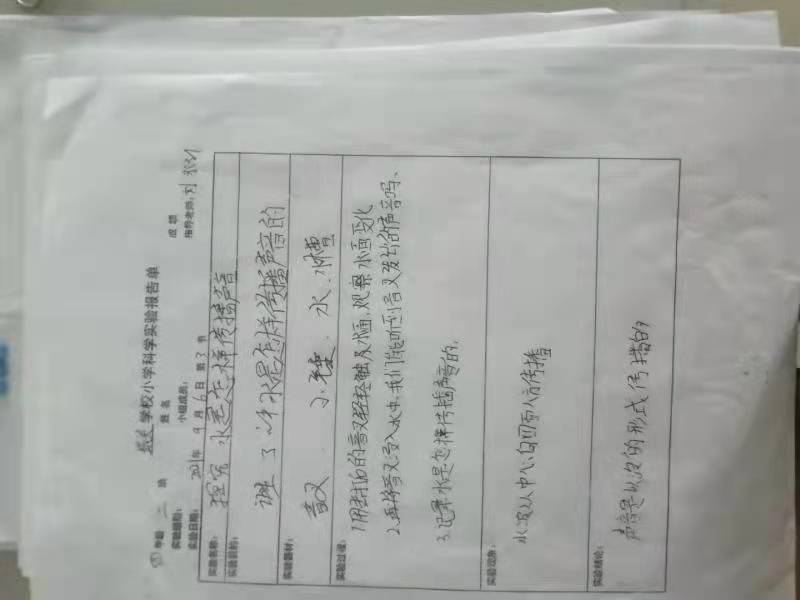 学校小学科学实验报告单
四 年级 二 班 姓名 成绩
实验组别: 小组成员: 指导老师: 刘
实验日期: 2021年 9 月 6 日 第 3 节
实验名称: 探究水是怎样传播声音
实验目的: 了 水是怎样传播声音的
实验器材: 音叉 小锤 水 水槽
实验过程: 1.用 的音叉轻轻触及水面,观察水面变化
2.再将音叉 入水中,我们能听到音叉发出的声音吗、
3.记录水是怎样传播声音的.
实验现象: 水波从中心向四面八方传播
实验结论: 声音是以波的形式传播的